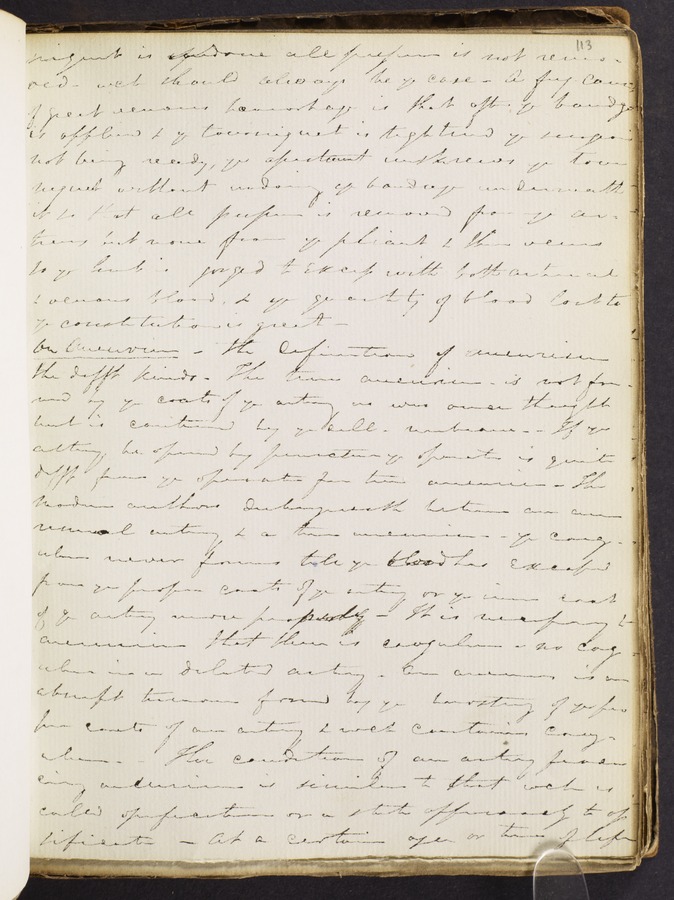 113
niquet is undone all pressure is not remo-
ved - wch should always be ye case - A freq. cause
of great venous hemorrhage is that after ye bandage
is applied & ye tourniquet is tightened ye surgeon
not being ready, ye assistant unskrews ye tour
niquet without undoing ye bandage underneath
it so that all pressure is removed from ye ar-
teries but none from ye & then veins
so ye limb is gorged to excess with both arterial
& venous blood, & ye quantity of blood lost to
ye constitution is great -
On Aneurism - The Definition of aneurism
the difft kinds - The true aneurism - is not for
med by ye coats of ye artery as was once thought
but is contained by ye cell. membrane - If ye
artery be opened by puncture ye operatn is quite
difft from ye operatn for true aneurism - The
modern authors distinguish between an aneu
rismal artery & a true aneurism - ye coag-
ulum never forms till ye blood has escaped
from ye proper coats of ye artery or ye inner coat
of ye artery more properly - It is necessary to
aneurism that there is coagulum - no coag-
ulum in a dilated artery - An aneurism is an
abrupt tumour formd by ye bursting of ye pro
per coats of an artery & wch contains coag-
ulum - The condition of an artery produ
cing aneurism is similar to that wch is
called ossification or a state approaching to os
sificatn - At a certain age or time of life